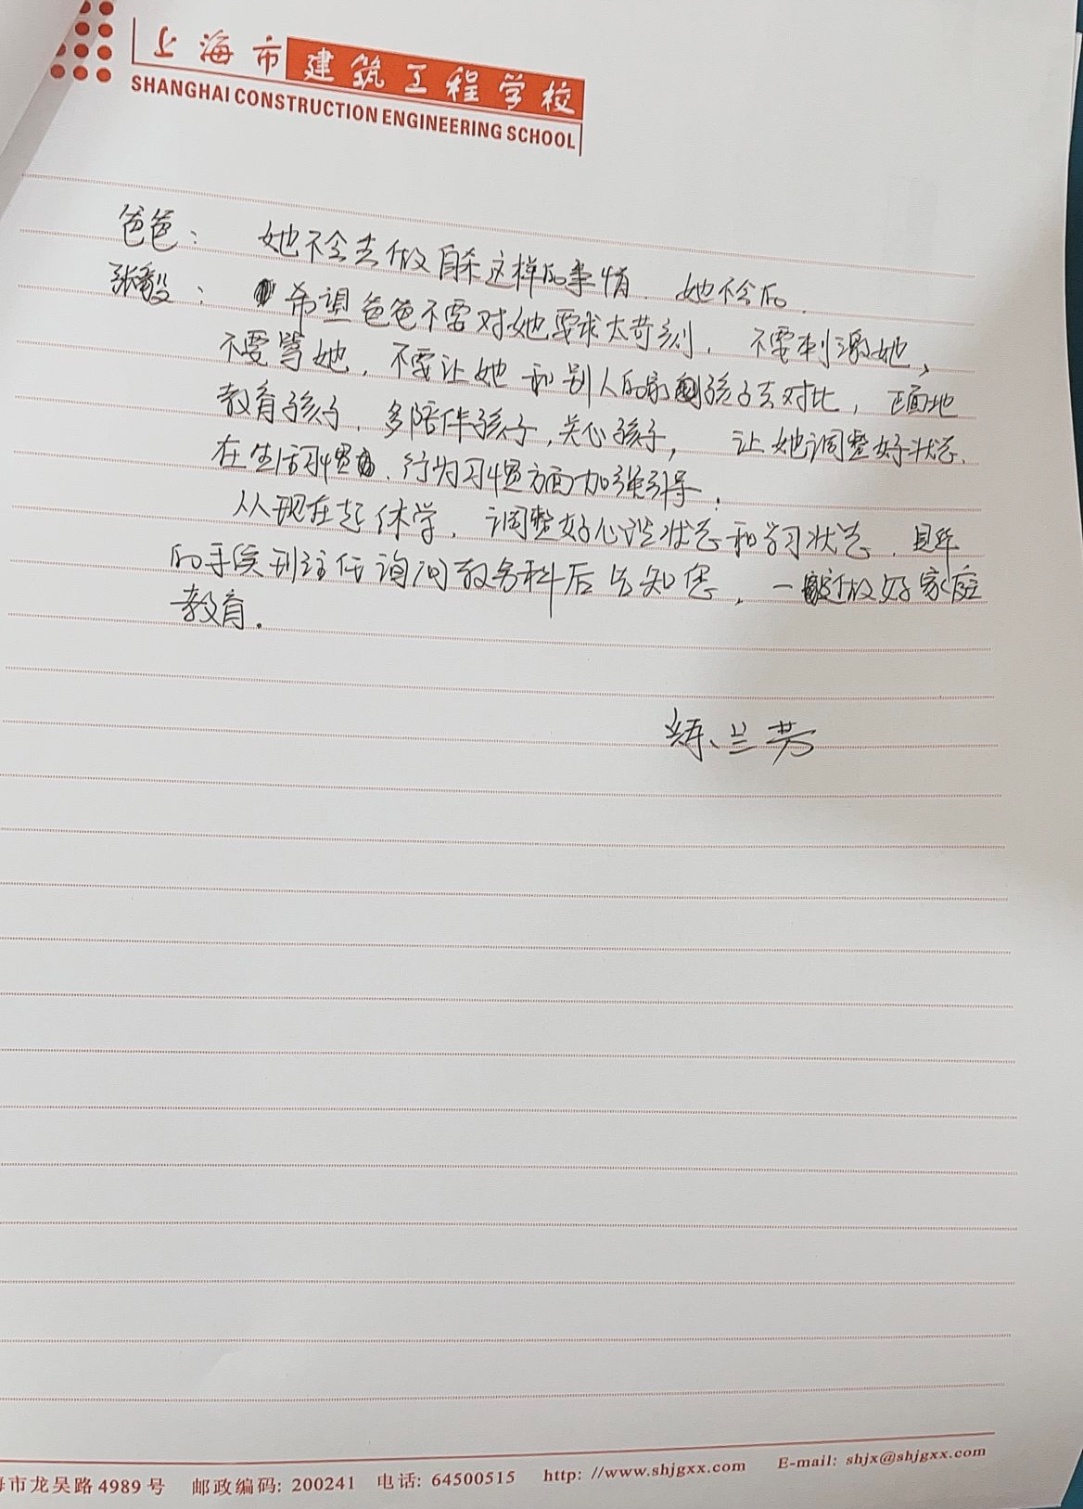 上海市建筑工程学校
SHANGHAI CONSTRUCTION ENGINEERING SCHOOL
爸爸： 她不会去做自杀这样的事情. 她不会的.
张毅： 希望爸爸不要对她要求太苛刻, 不要刺激她,
不要骂她, 不要让她和别人的家孩子去对比, 正面地
教育孩子, 多陪伴孩子, 关心孩子, 让她调整好状态.
在生活习惯、行为习惯方面加强引导.
从现在起休学, 调整好心理状态和学习状态.
的手续班主任询问教务科后告知您, 一定做好家庭
教育.
兰芳
海市龙吴路 4989 号 邮政编码: 200241 电话: 64500515 http: //www.shjgxx.com E-mail: shjx@shjgxx.com